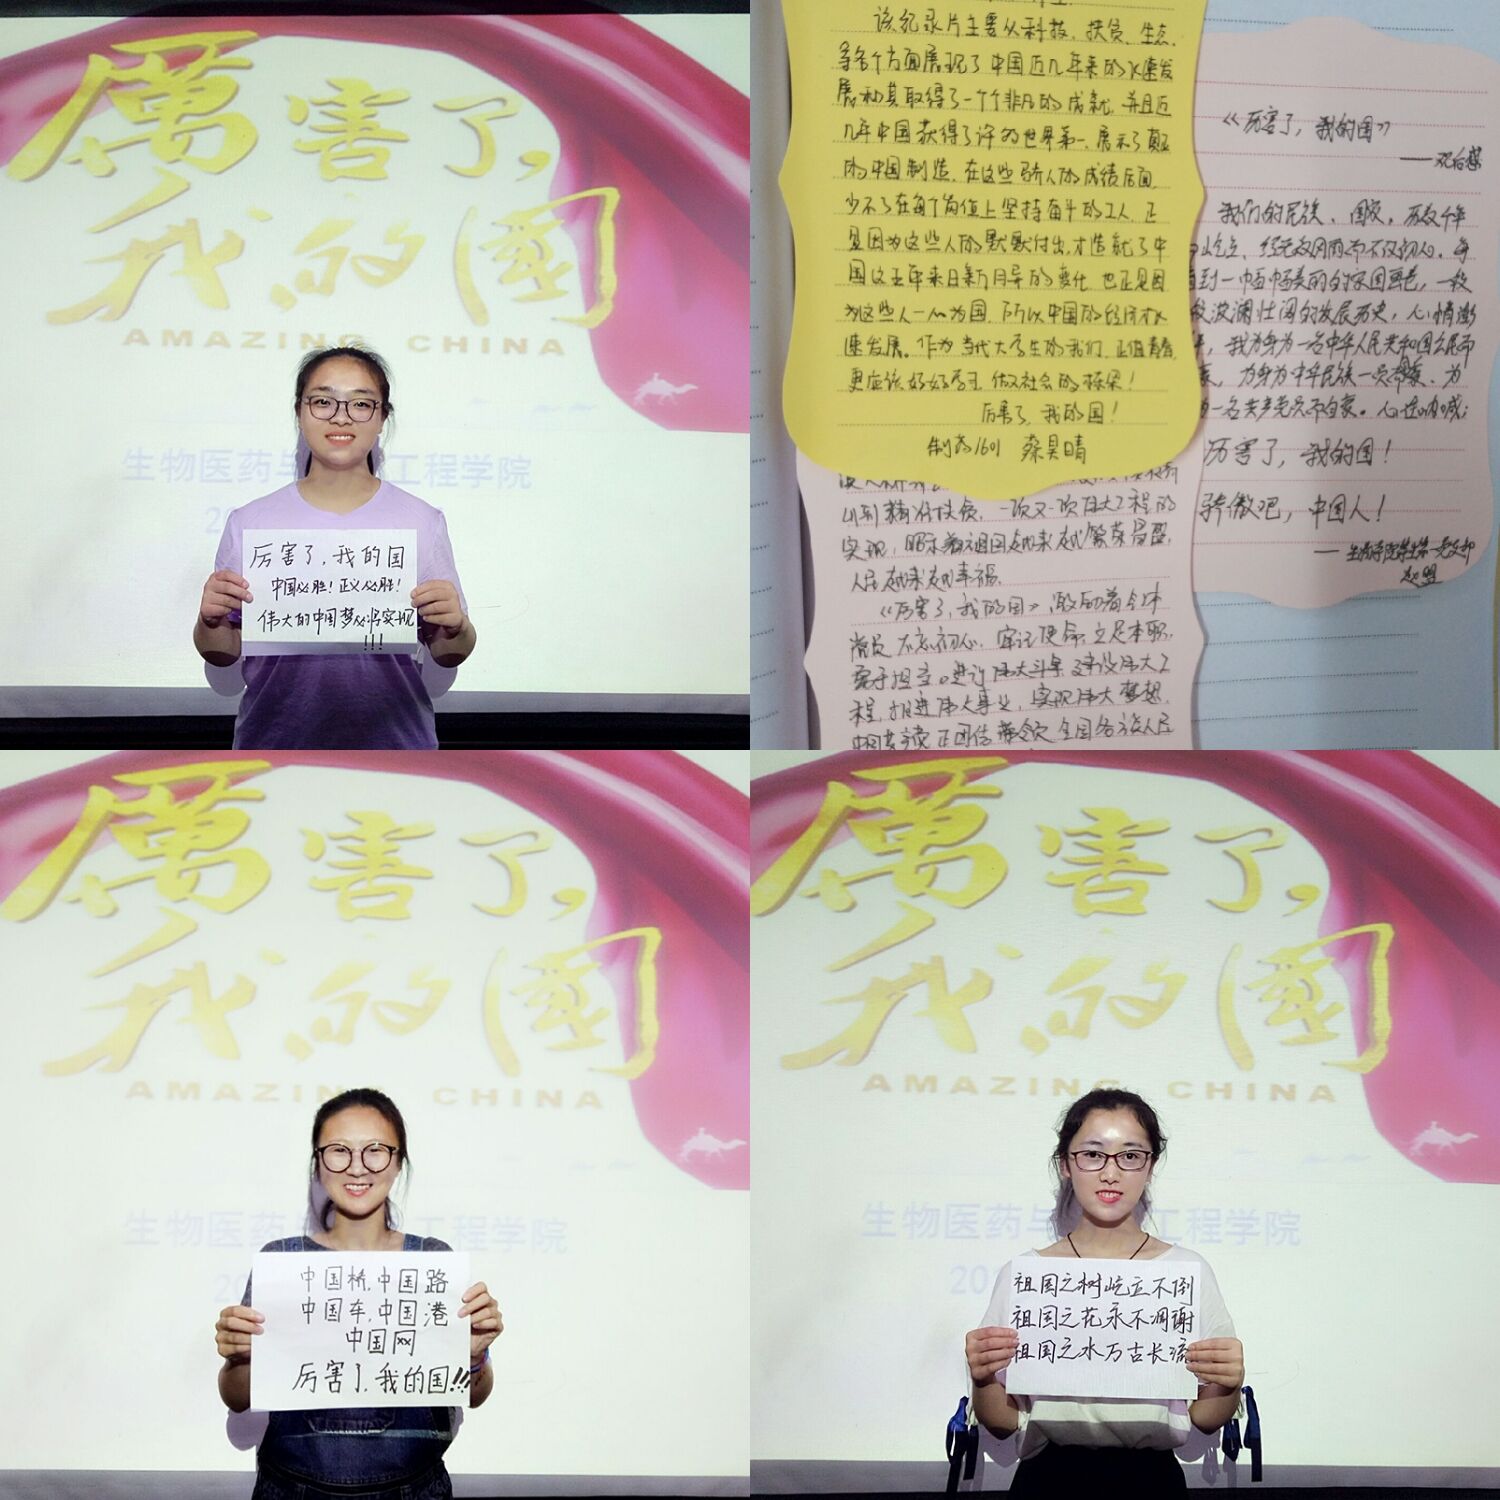 厲害了，
我的國
AMAZING CHINA
生物医药与 工程学院
厉害了，我的国
中国必胜！正义必胜！
伟大的中国梦必将实现
!!!
该纪录片主要从科技、扶贫、生态、
等各个方面展现了中国近几年来的快速发
展和其取得了一个个非凡的成就，并且近
几年中国获得了许多世界第一，展示了真正
的中国制造，在这些骄人的成绩后面，
少不了在每个岗位上坚持奋斗的工人，正
是因为这些人的默默付出，才造就了中
国这五年来日新月异的变化，也正是因
为这些人一心为国，所以中国的经济才快
速发展。作为当代大学生的我们，正值青春，
更应该好好学习，做社会的栋梁！
厉害了，我的国！
制药1601 蔡昊晴
《厉害了，我的国》
——观后感
我们的民族、国家，历数千年
屹立，经无数风雨而不改初心。每
看到一中国 美的 国画卷，一段
段波澜壮阔的发展历史，心情澎
，我为身为一名中华人民共和国公民而
，为身为中华民族一员 、为
一名共产党员而自豪。心 呐喊：
厉害了，我的国！
骄傲吧，中国人！
赵盟
到精准扶贫，一次又一次伟大工程的
实现，昭示着祖国越来越繁荣昌盛，
人民越来越幸福。
《厉害了，我的国》激励着全体
党员不忘初心，牢记使命，立足本职，
勇于担当。进行伟大斗争，建设伟大工
程，推进伟大事业，实现伟大梦想，
中国共产党正团结带领 全国各族人民
厲害了，
我的國
AMAZING CHINA
生物医药与 工程学院
中国桥，中国路
中国车，中国港
中国网
厉害了，我的国!!!
厲害了，
我的國
AMAZING CHINA
生物医药与 工程学院
祖国之树屹立不倒
祖国之花永不凋谢
祖国之水万古长流